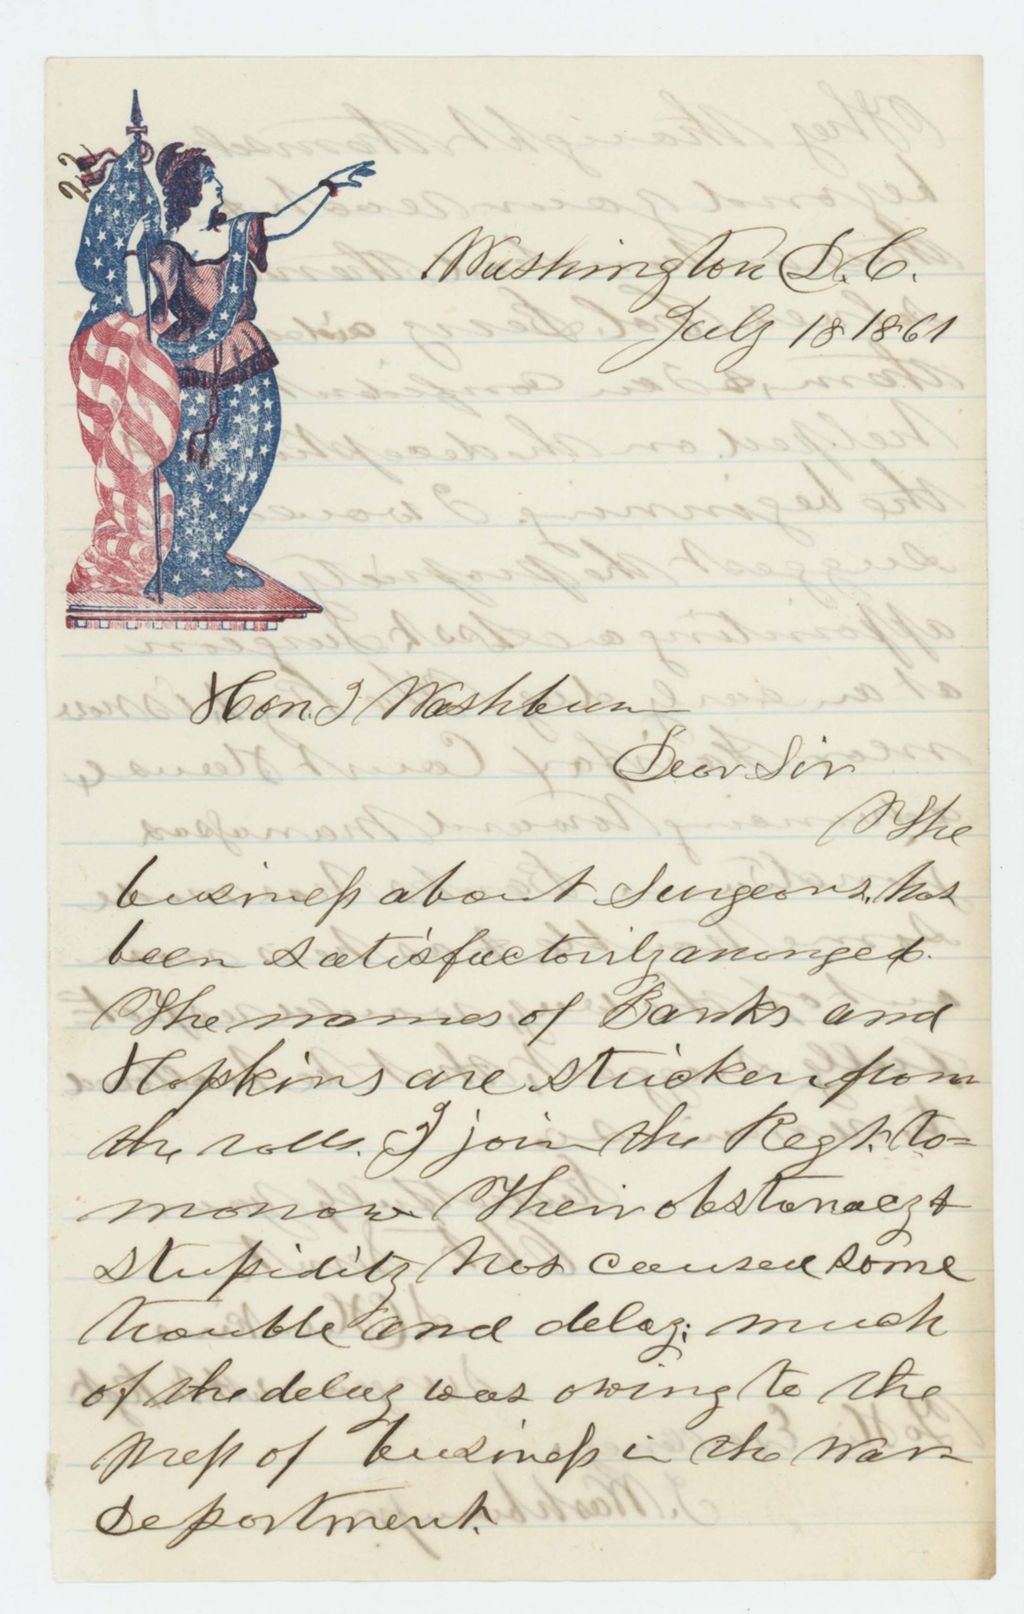 22
Washington D. C.
July 18 1861
Hon. I Washburn
Dear Sir
The
business about Surgeons, has
been satisfactorily arranged.
The names of Banks and
Hopkins are stricken from
the rolls. I join the Regt. to=
morrow. Their obstanacy &
stupidity has caused some
trouble and delay; much
of the delay was owing to the
press of business in the War
Department.